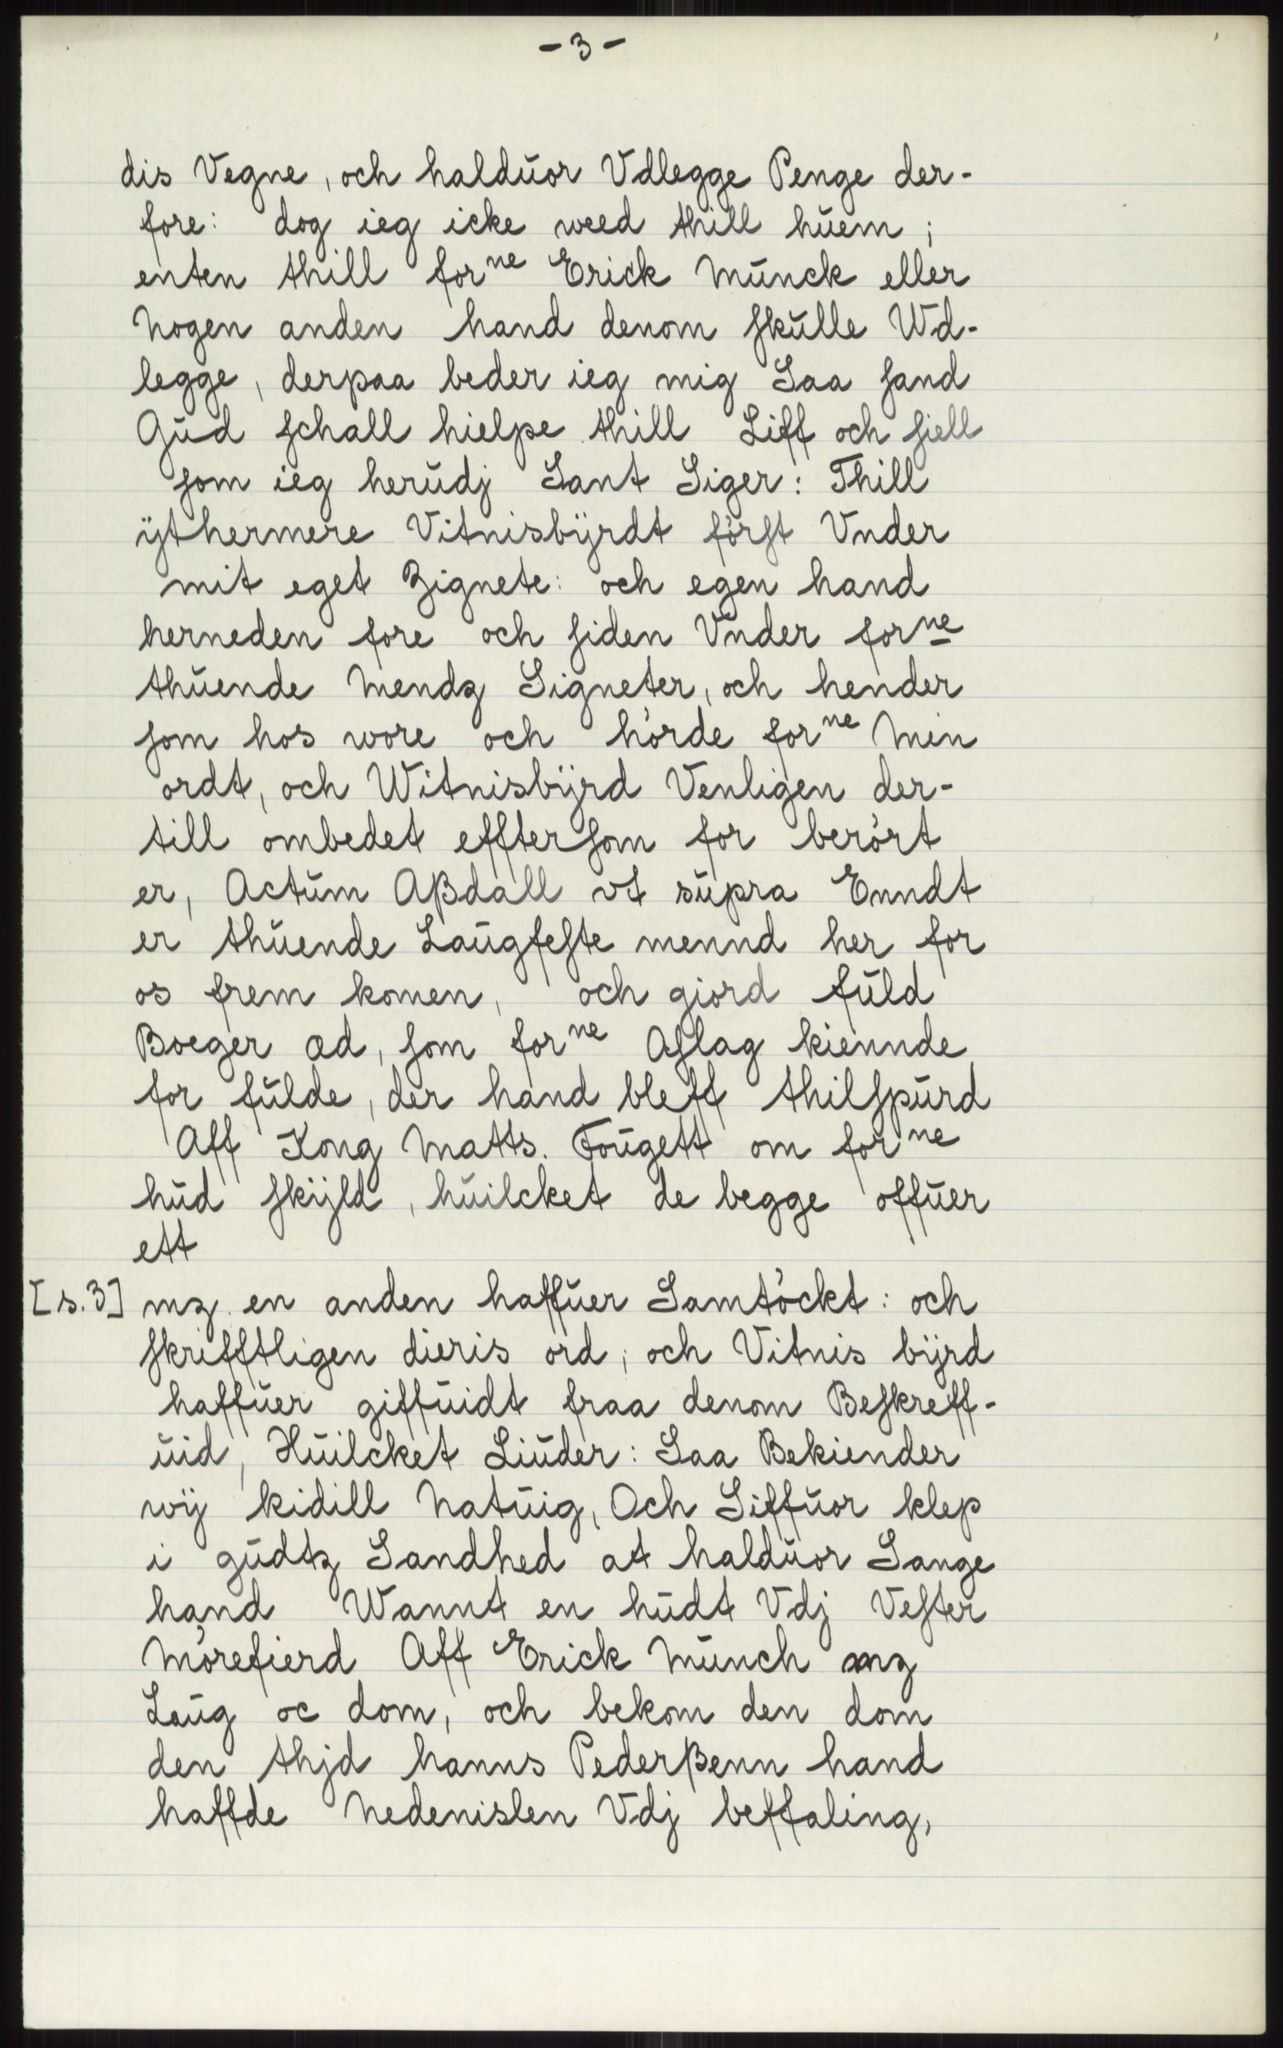 - 3 -
dis Vegne, och halduor Vdlegge Penge der-
fore: dog ieg icke weed thill huem;
enten thill forne Erick Munck eller
Nogen anden hand denom skulle Wd-
legge, derpaa beder ieg mig Saa sand
Gud schall hielpe thill Liff och siell
som ieg herudj Sant Siger: Thill
ÿthermere Vitnisbÿrdt först Vnder
mit eget Zignete: och egen hand
herneden fore och siden Vnder forne
thuende Mendz Signeter, och hender
som hos wore och hörde forne Min
ordt, och Witnisbÿrd Venligen der-
till ombedet efftersom for berört
er, Actum Aßdall vt supra Enndt
er thuende Laugfeste mennd her for
os frem komen, och giord fuld
Boeger æd, som forne Aslag kiennde
for fulde, der hand bleff thilspurd
Aff Kong Matts. Fougett om forne
hud skÿld, huilcket de begge offuer
ett
[s.3] mz en anden haffuer Samtöckt: och
skrifftligen dieris ord; och Vitnis bÿrd
haffuer giffuidt fraa denom Beskreff-
uid, Huilcket Liuder: Saa Bekiender
wÿ kidill Natuig, Och Siffuor klep
i gudtz Sandhed at halduor Lange
hand Wannt en hudt Vdj Vester
Mörefierd Aff Erick Munch mz
Laug oc dom, och bekom den dom
den thjd hanns Pederßenn hand
haffde Nedenislen Vdj beffaling,